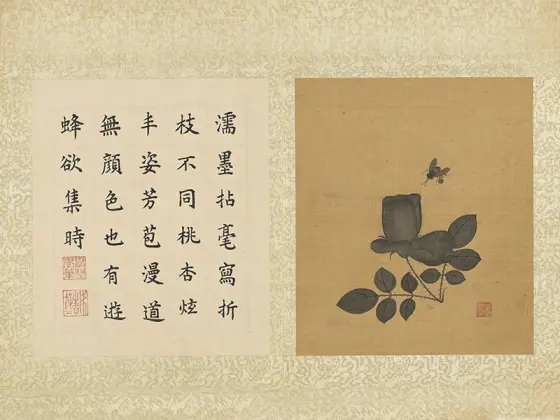 濡墨拈毫寫折
枝不同桃杏炫
丰姿芳苞漫道
無顏色也有遊
蜂欲集時